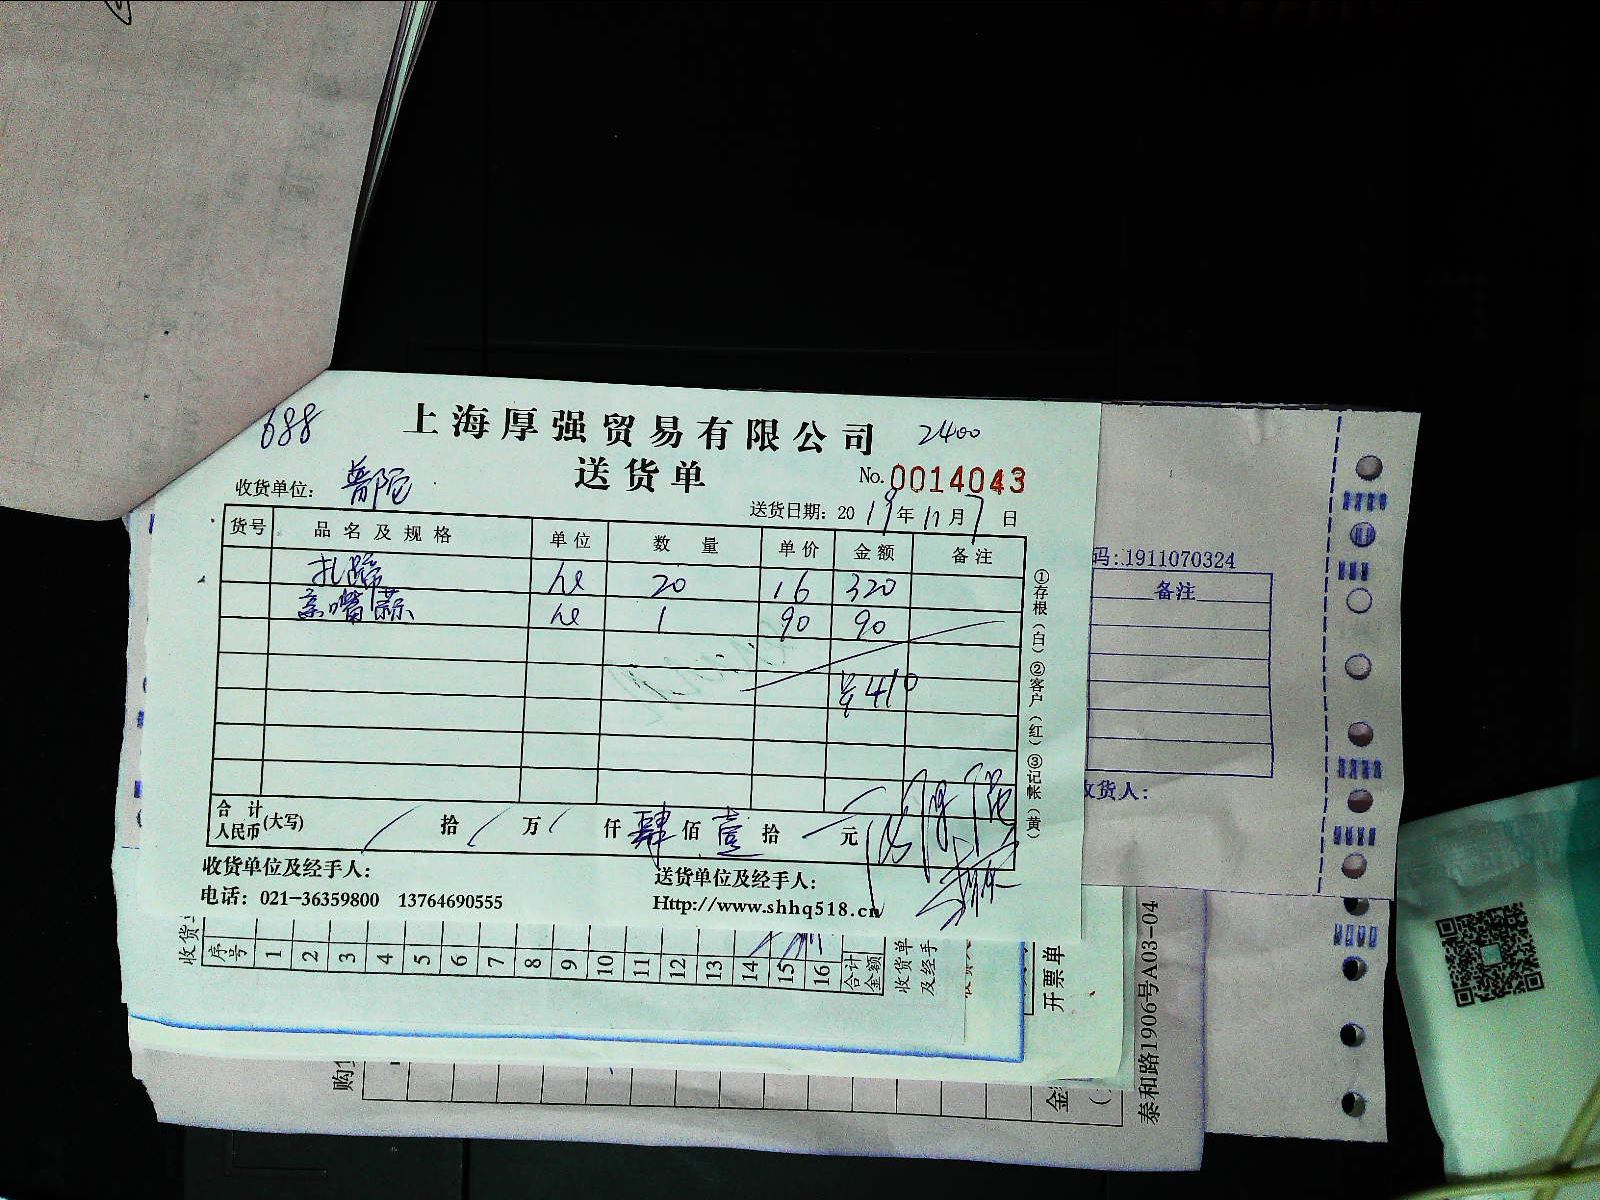 688
上海厚强贸易有限公司 2400
送货单 No. 0014043
收货单位: 普陀
送货日期: 2019年11月7日
货号 品名及规格 单位 数量 单价 金额 备注
扎蹄 20 16 320
1 90 90
410
合计人民币(大写) 拾 万 仟 肆佰 壹拾 元
收货单位及经手人: 送货单位及经手人:
电话: 021-36359800 13764690555 Http://www.shhq518.cn
①存根(白) ②客户(红) ③记帐(黄)
码:1911070324
备注
收货人:
收货
序号 1 2 3 4 5 6 7 8 9 10 11 12 13 14 15 16 合计金额
收货单
及经手
开票单
购
泰和路1906号A03-04